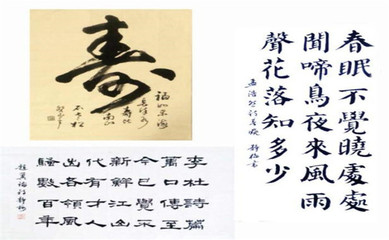 壽
福如東海
長流水
壽比
南山
不老松
春眠不覺曉處處
聞啼鳥夜來風雨
聲花落知多少
李杜詩篇
萬口傳至
今已覺不
新鮮江山
代有才人
出各領風
騷數百年